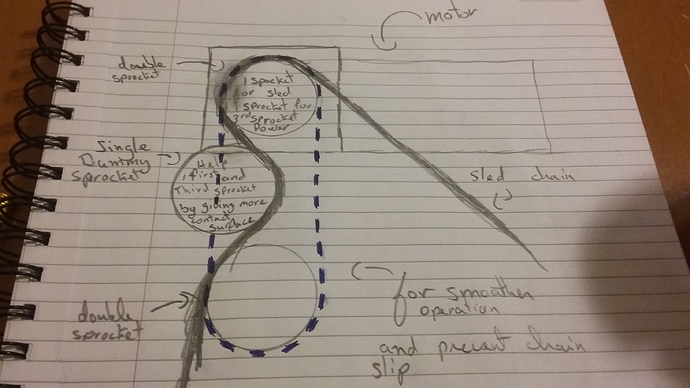 motor
double
sprocket
1 sprocket
or sled
sprocket for
3rd sprocket
Power
Single
Dummy
sprocket
Help
first and
Third sprocket
by giving more
contact
surface
sled chain
double
sprocket
for smoother
operation
and prevent chain
slip